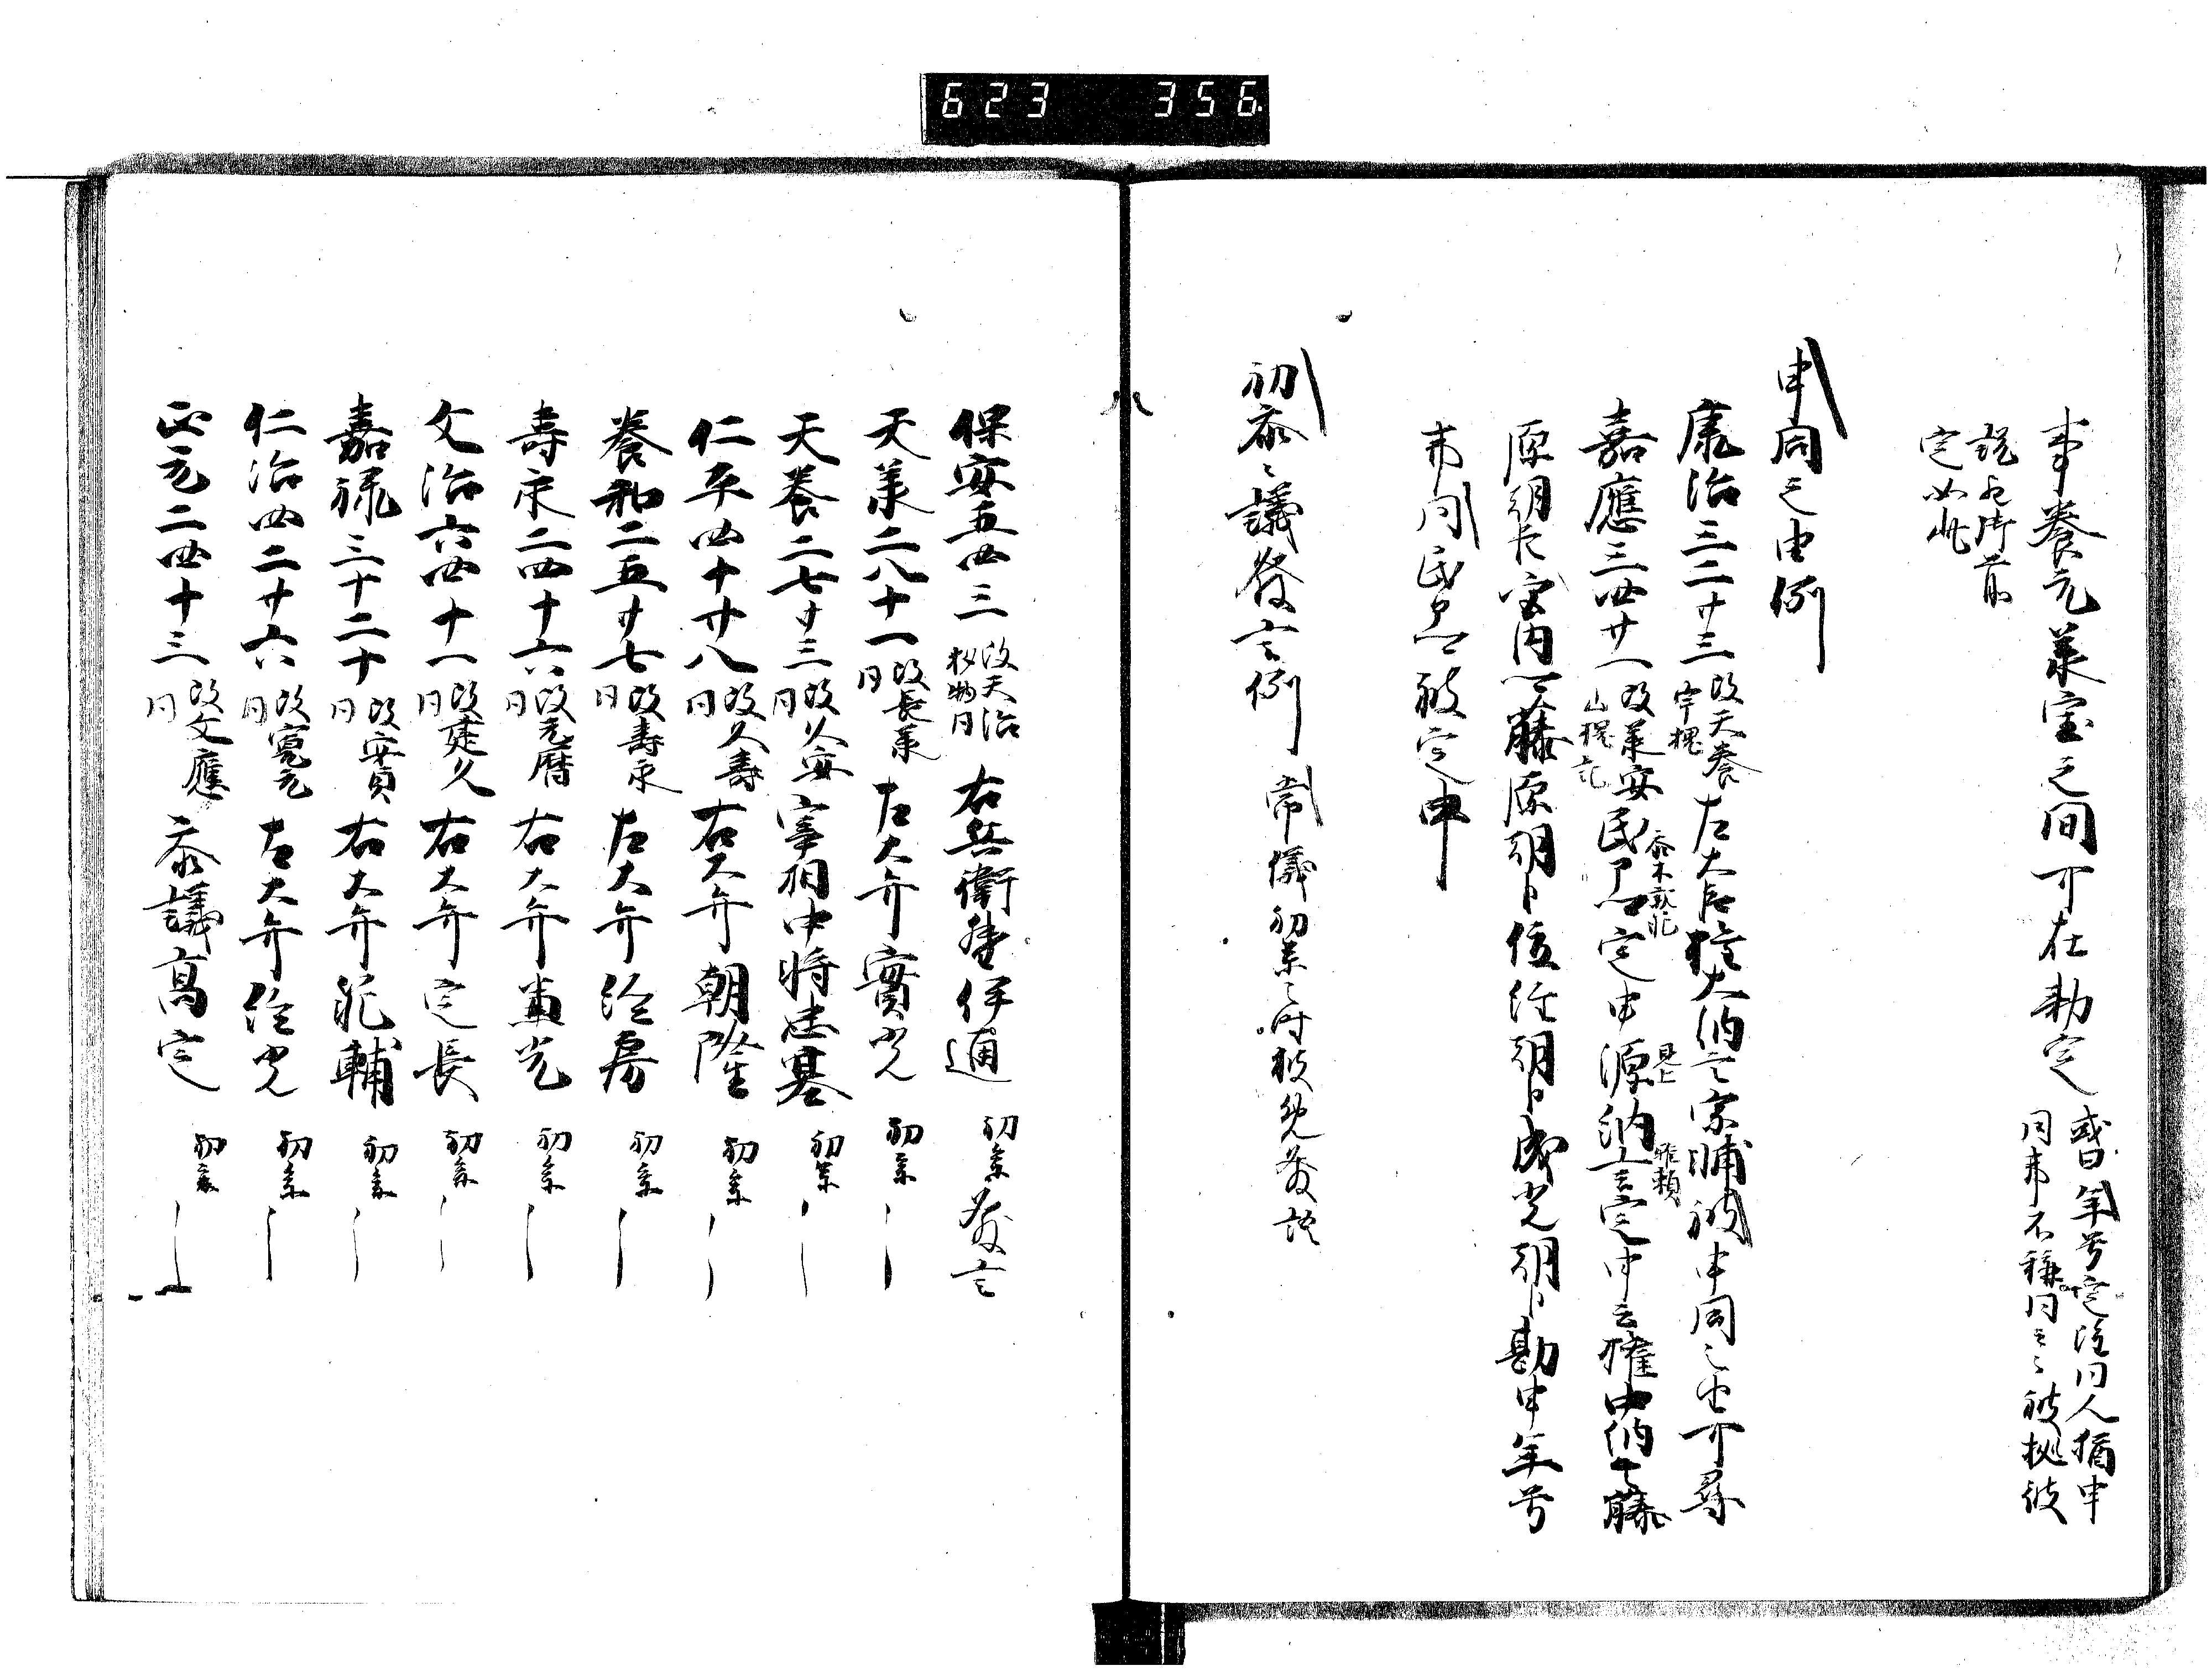 623 356
事養元萬寧之間可在勅定
或曰年号定詮同人摘申
同事不稱同云々被挍彼
説也所前
定如此
申同之由例
康治三二廿三
改天養
宇槐
左大臣権大納言宗輔被申同之由可尋
嘉應三四廿一
改承安
山槐記
民卩卿定申源納言定申云権中納言藤
参木親範
見上
雅頼
原朝臣宮内卿藤原朝臣位任朝臣成光朝臣勘申年号
事同民卩卿被定申
初参之議發言例
常儀初参之時被免發語
保安五四三
改天治
朝隆
右兵衛督伊通
初参發言
天承二八十一
改長承
同
左大弁實光
初参
天養二七廿三
改久安
同
宰相中将忠基
初参
仁平四十廿八
改久壽
同
右大弁朝隆
初参
養和二五廿七
改壽永
同
左大弁経房
初参
壽永二四十六
改元暦
同
右大弁兼光
初参
文治六四十一
改建久
同
右大弁定長
初参
嘉禄三十二十
改安貞
同
右大弁範輔
初参
仁治四二廿六
改寛元
同
左大弁経光
初参
正元二四十三
改文應
同
参議高定
初参